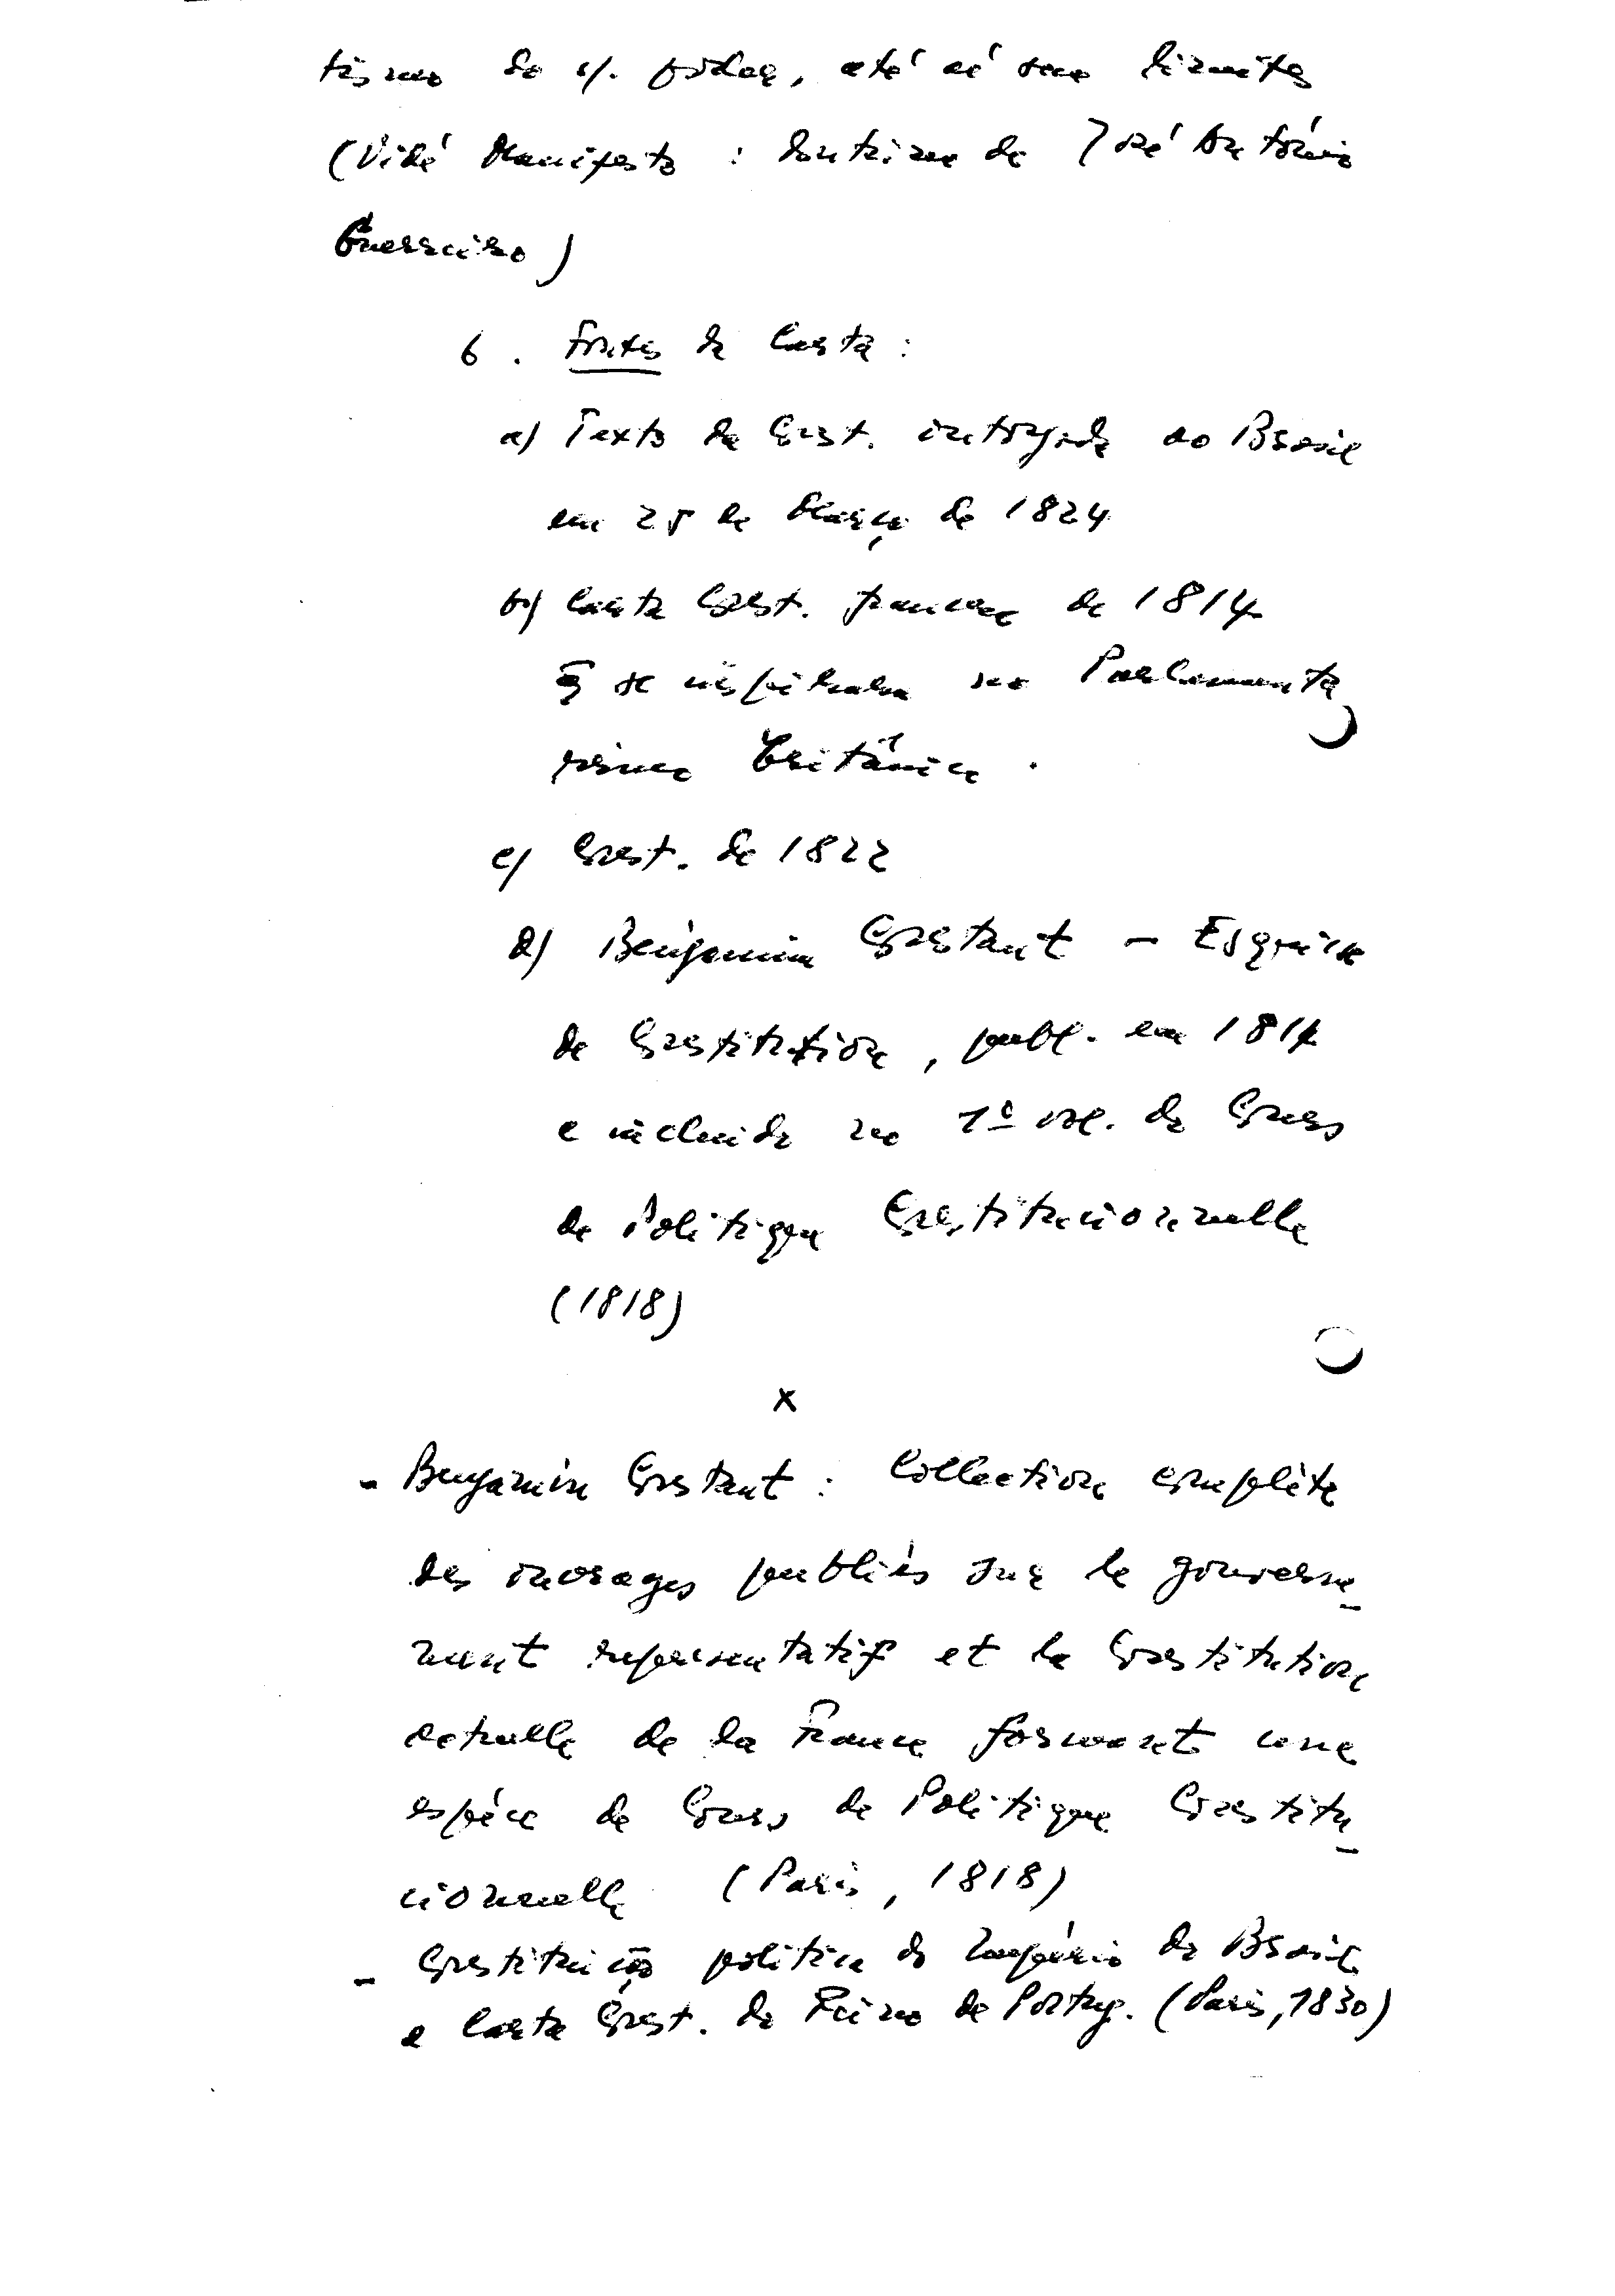 tismo do s/. poder, até aí sem limites
(Vidé Manifesto : doutrina de José António
Guerreiro)
6. Fontes da Carta :
a) Texto da Const. outorgada ao Brasil
em 25 de Março de 1824
b) Carta Const. francesa de 1814
q̄ se inspirava no Parlamenta
rismo Britânico .
c) Const. de 1822
d) Benjamin Constant - Esquisse
de Constitution, publ. em 1814
e incluido no 1º vol. do Cours
de Politique Constitucionnelle
(1818)
x
- Benjamin Constant : Collection complète
des ouvrages publiés sur le gouverne_
ment representatif et la Constitution
actuelle de la France formant une
espéce de Cours de Politique Constitu_
cionnelle (Paris, 1818)
- Constituição politica do Império do Brasil
e Carta Const. do Reino de Portug. (Paris, 1830)